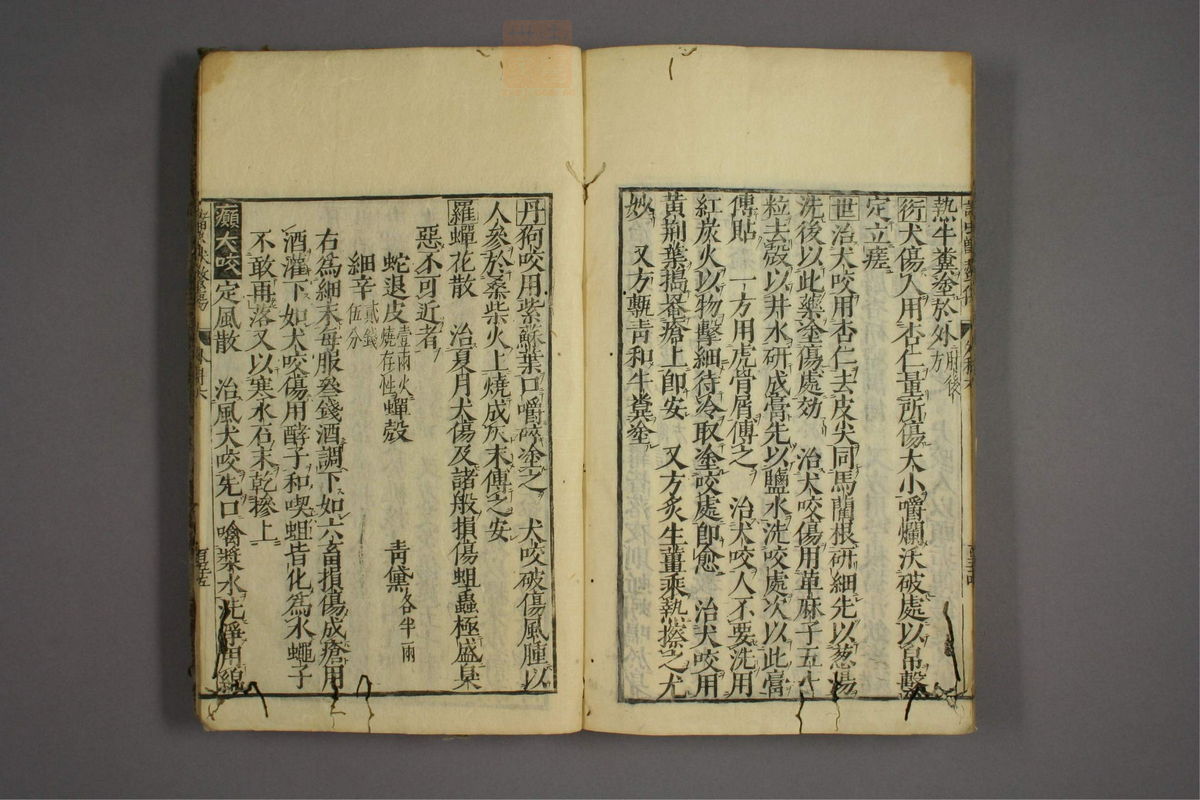 熱牛糞叁於外用後方
衍犬傷人用杏仁量所傷大小嚼爛沃破處以帛擊
定立瘥
世治犬咬用杏仁去皮尖同馬藺根研細先以葱湯
洗後以此藥塗傷處効 治犬咬傷用萆麻子五十
粒去殻以井水研成膏先以鹽水洗咬處次以此膏
傅貼 一方用虎骨屑傅之 治犬咬人不要洗用
紅炭火以物擊細待冷取塗咬處即愈 治犬咬用
黄荆葉搗罯瘡上即安 又方炙生薑乘熱擦之尤
妙 又方甎青和牛糞塗
丹狗咬用紫蘇葉口嚼碎塗之 犬咬破傷風腫以
人參於桑柴火上燒成灰末傅之安
羅蟬花散 治夏月犬傷及諸般損傷蛆蟲極盛臭
惡不可近者
蛇退皮壹兩火燒存性蟬殻 青黛各半兩
細辛貳錢伍分
右為細末每服叁錢酒調下如六畜損傷成瘡用
酒灌下如犬咬傷用酵子和喫蛆皆化為水蠅子
不敢再落又以寒水石末乾摻上
癲犬咬定風散 治風犬咬先口噙漿水洗淨用綿